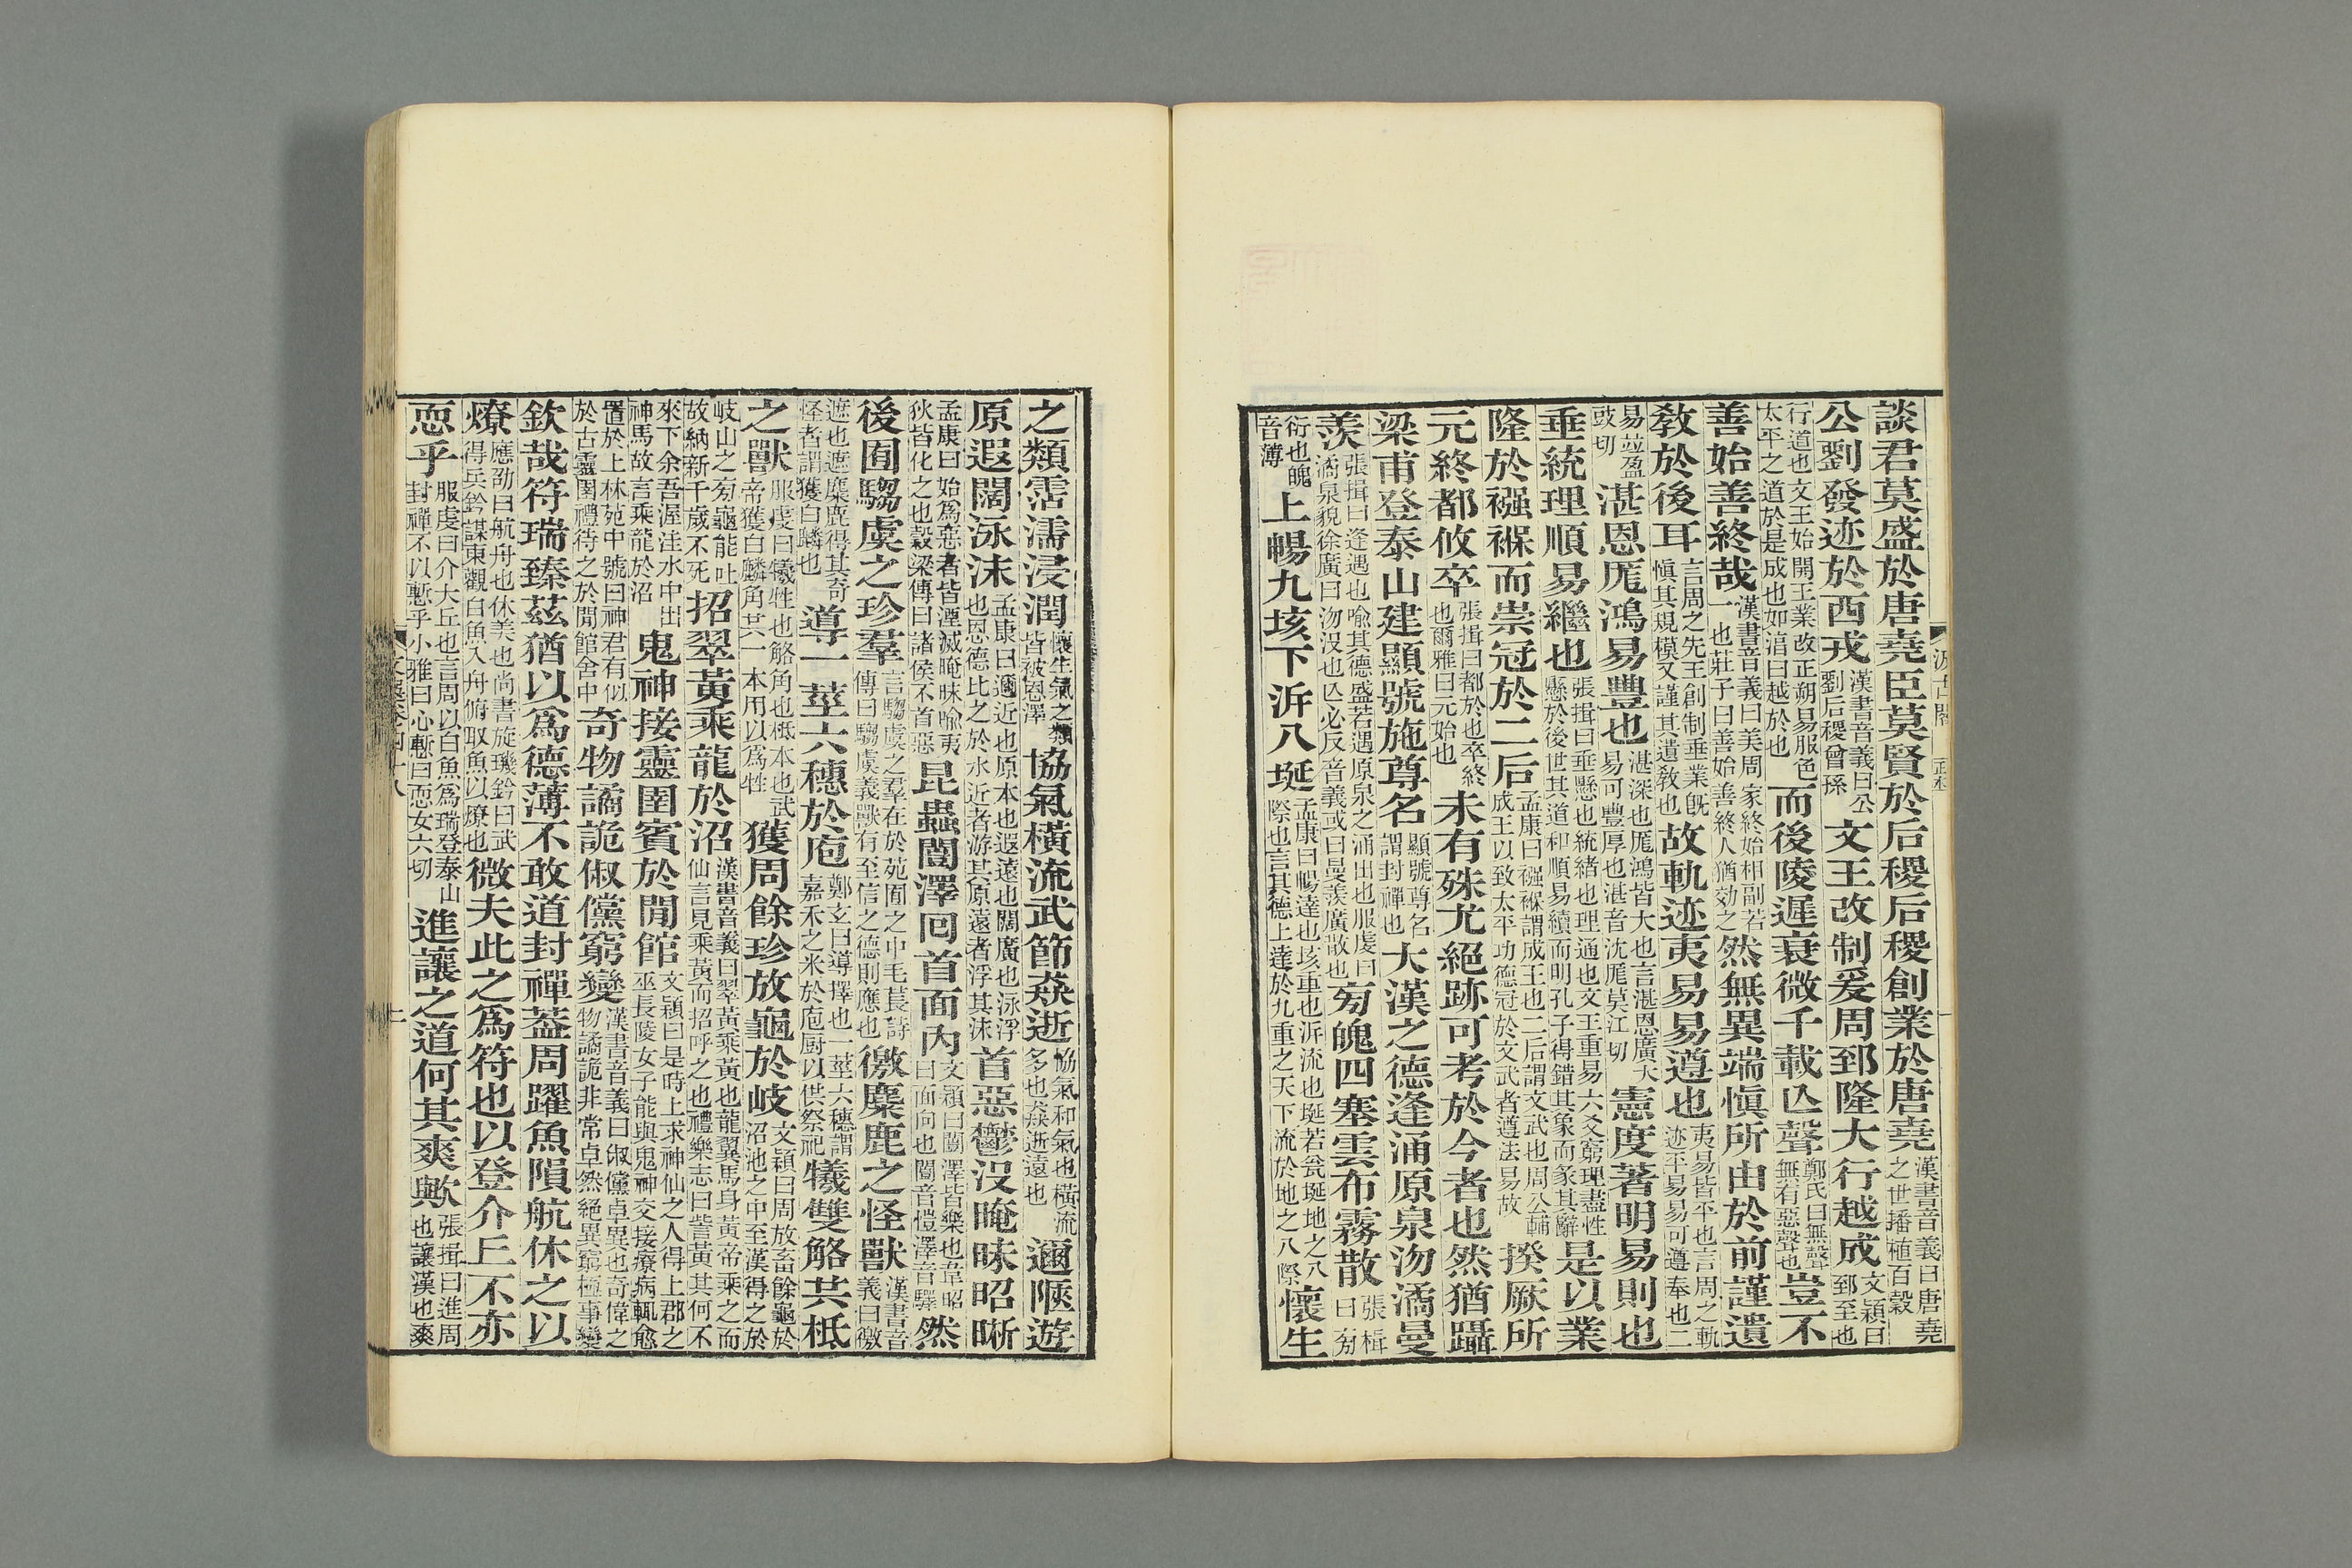 談君莫盛於唐堯臣莫賢於后稷后稷創業於唐堯漢書音義曰唐堯之世播殖百穀
公劉發迹於西戎漢書音義曰公劉后稷曾孫文王改制爰周郅隆大行越成文穎曰郅至也
行道也文王始開王業改正朔易服色太平之道於是成也如淳曰越於也而後陵遲衰微千載亾聲鄭氏曰無聲無有惡聲也豈不
善始善終哉漢書音義曰美周家終始相副若一也莊子曰善始善終人猶効之然無異端愼所由於前謹遺
敎於後耳言周之先王創制垂業旣愼其規模又謹其遺敎也故軌迹夷易易遵也夷易皆平也言周之軌迹平易易可遵奉也二
易並盈豉切湛恩厖鴻易豐也湛深也厖鴻皆大也言湛恩廣大易可豐厚也湛音沈厖莫江切憲度著明易則也
垂統理順易繼也張揖曰垂懸也統緒也理通也文王重易六爻窮理盡性懸於後世其道和順易續而明孔子得錯其象而彖其辭是以業
隆於襁褓而崇冠於二后孟康曰襁褓謂成王也二后謂文武也周公輔成王以致太平功德冠於文武者遵法易故揆厥所
元終都攸卒張揖曰都於也卒終也爾雅曰元始也未有殊尤絕跡可考於今者也然猶躡
梁甫登泰山建顯號施尊名顯號尊名謂封禪也大漢之德逢涌原泉沕潏曼
羨張揖曰逢遇也喻其德盛若遇原泉之涌出也服虔曰潏泉貌徐廣曰沕沒也亾必反音義或曰曼羨廣散也㫄魄四塞雲布霧散張楫曰㫄
衍也魄音薄上暢九垓下泝八埏孟康曰暢達也垓重也泝流也埏若瓮埏地之八際也言其德上達於九重之天下流於地之八際懷生
之類霑濡浸潤懷生氣之類皆被恩澤協氣橫流武節猋逝協氣和氣也橫流多也猋逝遠也邇陿遊
原遐闊泳沫孟康曰邇近也原本也遐遠也闊廣也泳浮也恩德比之於水近者游其原遠者浮其沫首惡鬱沒晻昧昭晰
孟康曰始爲惡者皆湮滅晻昧喻夷狄皆化之也穀梁傳曰諸侯不首惡昆蟲闓澤回首面內文穎曰闓澤皆樂也韋昭曰面向也闓音愷澤音驛然
後囿騶虞之珍羣言騶虞之羣在於苑囿之中毛萇詩傳曰騶虞義獸有至信之德則應也徼麋鹿之怪獸漢書音義曰徼
遮也遮麋鹿得其奇怪者謂獲白麟也導一莖六穗於庖鄭玄曰導擇也一莖六穗謂嘉禾之米於庖厨以供祭祀犧雙觡共柢
之獸服虔曰犧牲也觡角也柢本也武帝獲白麟角共一本用以爲牲獲周餘珍放龜於岐文穎曰周放畜餘龜於沼池之中至漢得之於
岐山之㫄龜能吐故納新千歲不死招翠黃乘龍於沼漢書音義曰翠黃乘黃也龍翼馬身黃帝乘之而仙言見乘黃而招呼之也禮樂志曰訾黃其何不
來下余吾渥洼水中出神馬故言乘龍於沼鬼神接靈圉賓於閒館文穎曰是時上求神仙之人得上郡之巫長陵女子能與鬼神交接療病輒愈
置於上林苑中號曰神君有似於古靈圉禮待之於閒館舍中奇物譎詭俶儻窮變漢書音義曰俶儻卓異也奇偉之物譎詭非常卓然絕異窮極事變
欽哉符瑞臻茲猶以爲德薄不敢道封禪葢周躍魚隕航休之以
燎應劭曰航舟也休美也尚書旋璣鈐曰武得兵鈐謀東觀白魚入舟俯取魚以燎也微夫此之爲符也以登介丘不亦
恧乎服虔曰介大丘也言周以白魚爲瑞登泰山封禪不以慙乎小雅曰心慙曰恧女六切進讓之道何其爽歟張揖曰進周也讓漢也爽